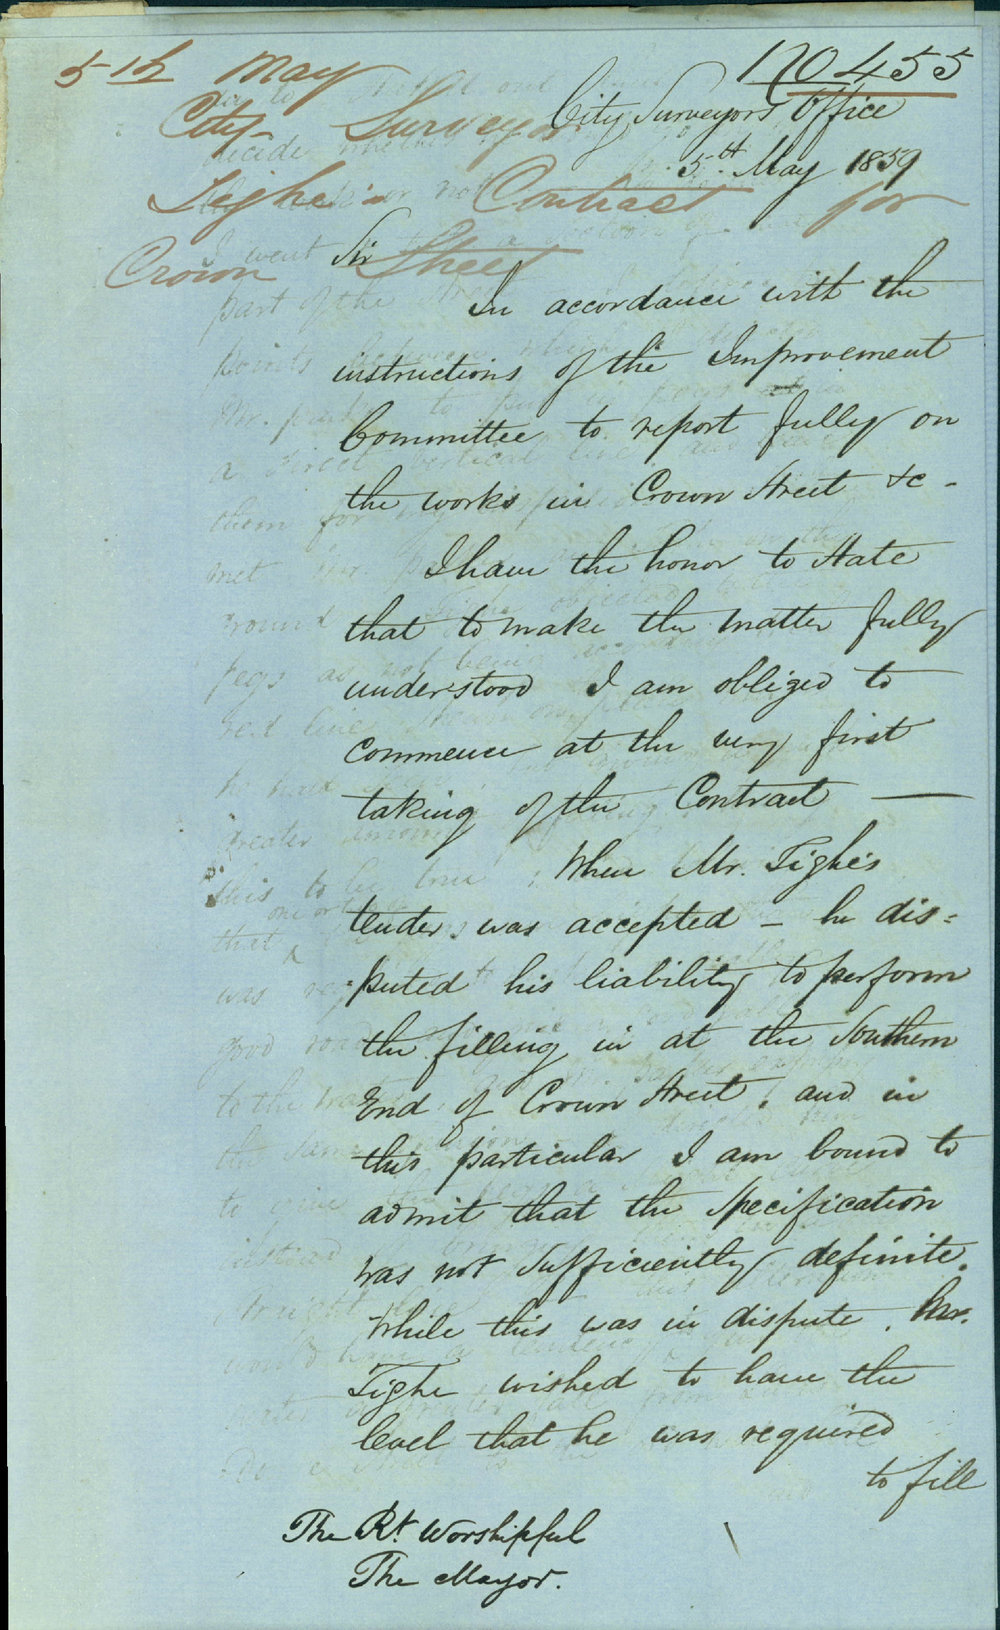 5th May
170455
City Surveyor
City Surveyors Office
5th May 1859
Tighe's Contract for
Crown Street
Sir
In accordance with the
instructions of the Improvement
Committee to report fully on
the works in Crown Street &c -
I have the honor to State
that to make the matter fully
understood I am obliged to
commence at the very first
taking of the Contract —
When Mr. Tighe's
tender was accepted - he dis=
puted his liability to perform
the filling in at the Southern
End of Crown Street, and in
this particular I am bound to
admit that the Specification
was not Sufficiently definite.
While this was in dispute. Mr.
Tighe wished to have the
level that he was required
to fill
The Rt. Worshipful
The Mayor.